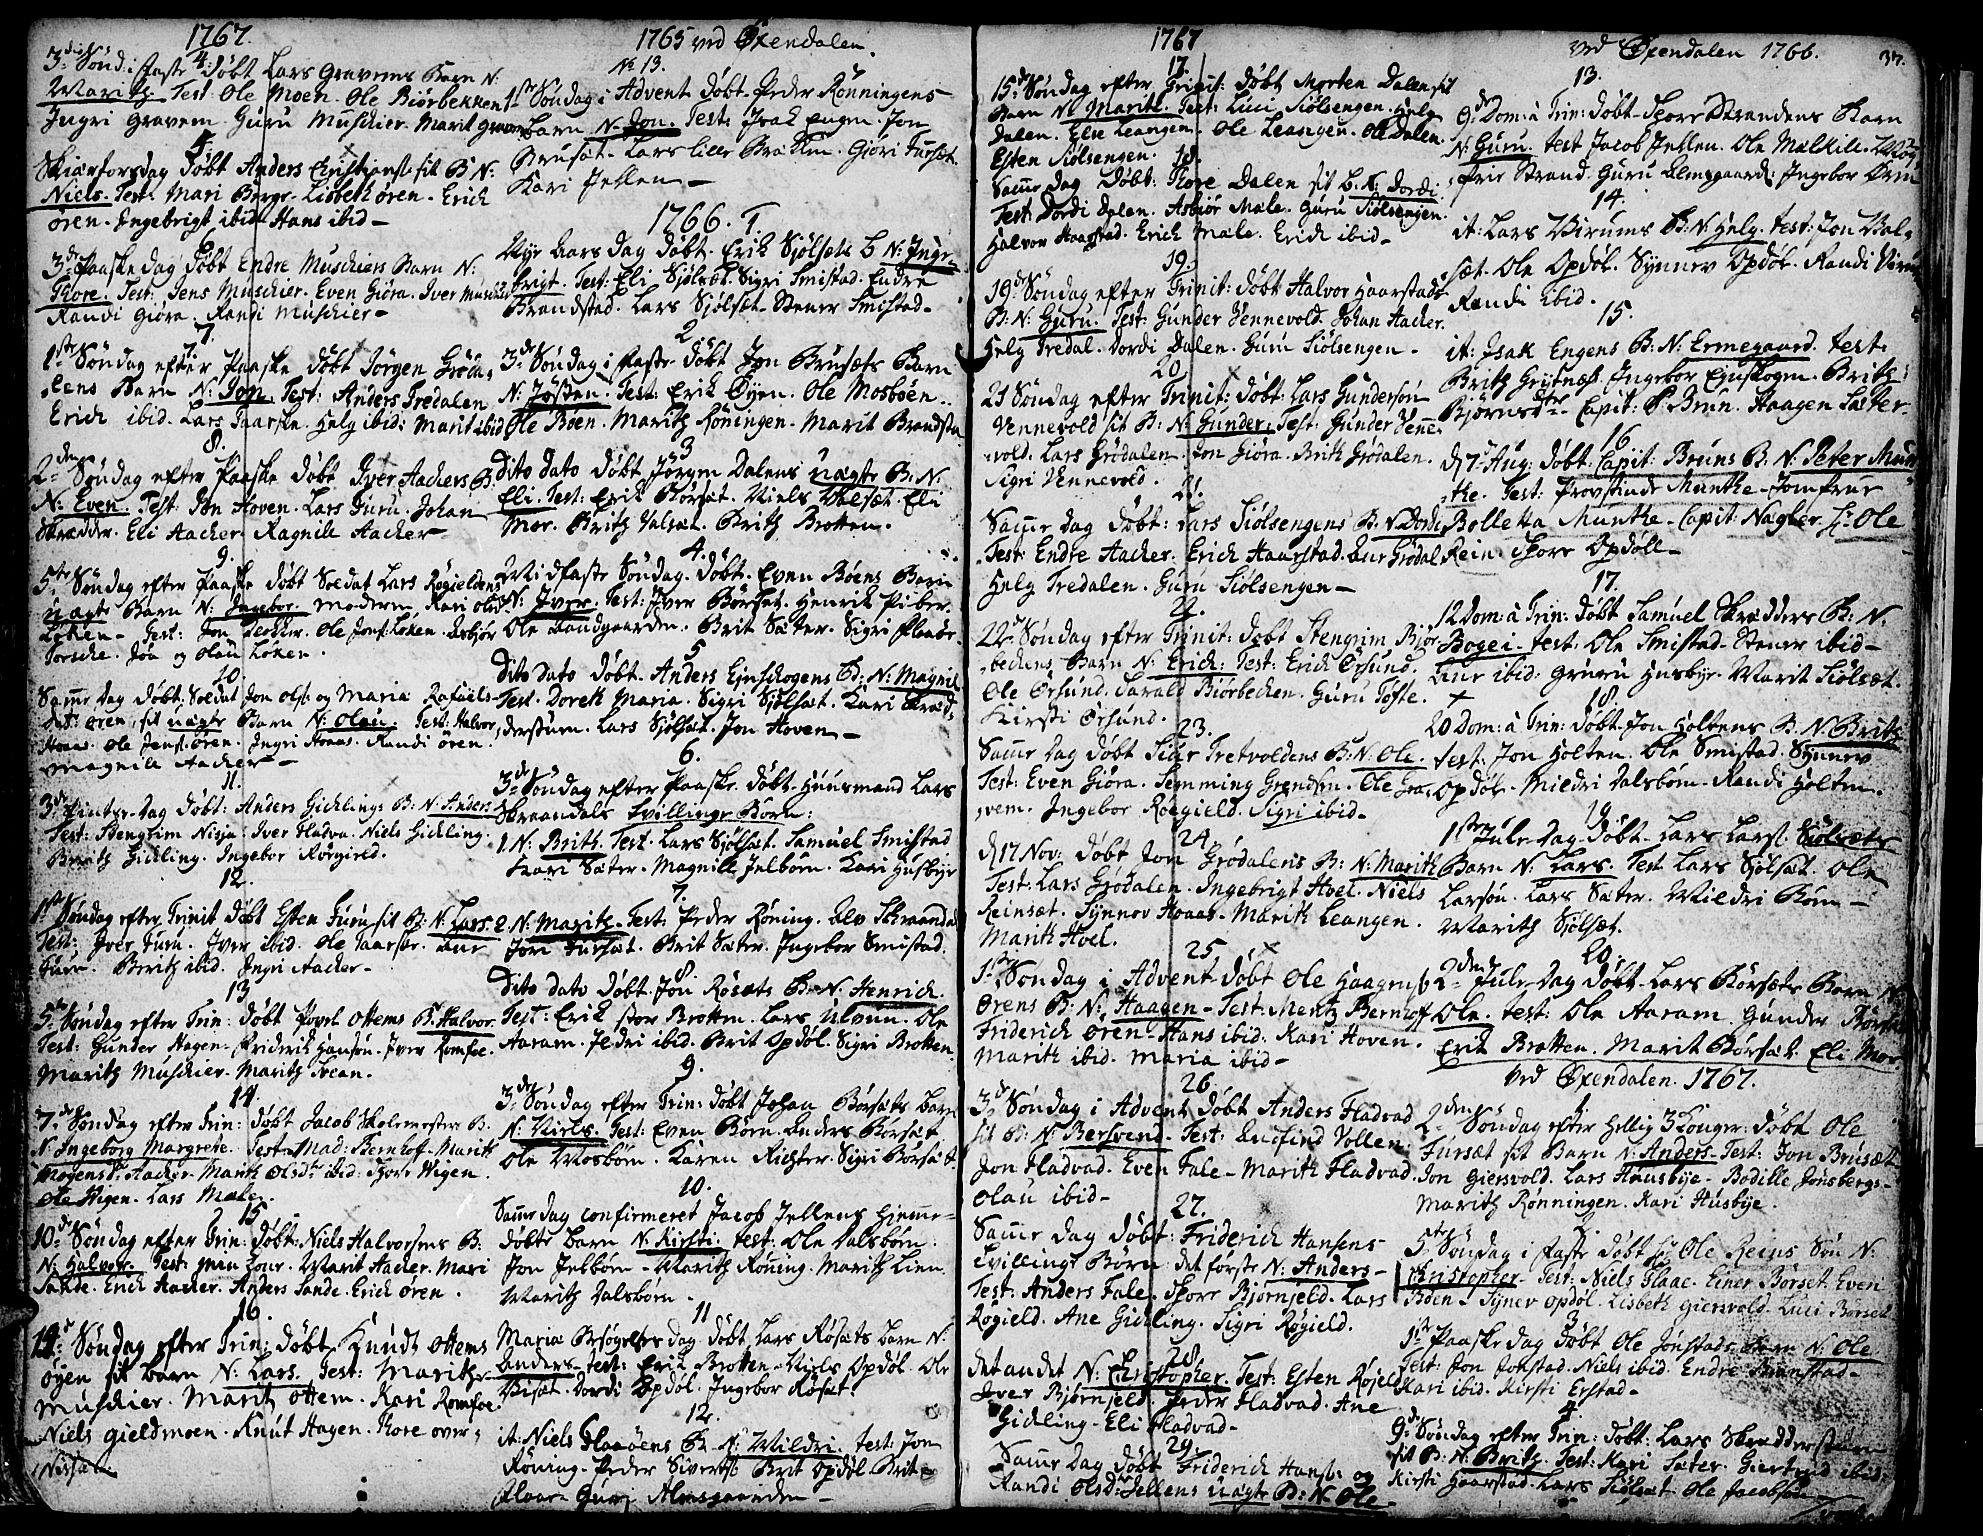 1767.
4.
3die Sønd: i faste Døbt Lars Gravems Barn N:
Marith Test: Ole Moen. Ole Biørbekken
Ingri Gravem. Guru Muschier. Marit Gravem
5.
Skiærtorsdag Døbt Anders Christiansøs sit B: N:
Niels. Test: Mari Berge. Lisbeth ören. Erich
ören. Ingebrigt ibid. Hans ibid—
6.
3de Paaske dag Døbt Endre Muschiers Barn N:
Thore. Test: Jens Muschier. Even Giöra. Iver Muschier
Randi Giöra. Randi Muschier—
7.
1ste Søndag efter Paaske døbt Jörgen Gröda-
lens Barn N: Jon. Test: Anders Tredalen
Erich ibid. Lars Taarske. Helg ibid: Marit ibid
8.
2den Søndag efter Paaske døbt Iver Aachers B:
N: Even. Test: Jon Hoven. Lars Furu. Johan
Skrædder. Eli Aacher. Ragnile Aacher—
9.
5te Søndag efter Paaske døbt Soldat Lars Røgieldens
uægte Barn N: Ingebor. moderen Kari Olsd:
Loken— Test: Jon Loken. Ole Jons: Loken. Asbjör
Torske. Jöa og Olau Loken.
10
Samme dag Døbt Soldat Jon Ols: og Maria Rafaels-
dat: ören, sit uægte Barn N: Olau. Test: Halvor
Hoaas. Ole Jens: ören. Ingri Hoaas. Randi ören.
Magnild Aacher—
11.
3die Pintse-Dag døbt: Anders Gichlings B: N: Anders
Test: Stengrim Nisja. Iver Fladva. Niels Gichling.
Brith Gichling. Ingebor Rørgield.
12.
1ste Søndag efter Trinit døbt Esten Furu sit B: N: Lars.
Test: Iver Furu. Iver ibid. Ole Taarske. Ane
Furu. Brith ibid. Ingri Aacher—
13.
5te Søndag efter Trin: Døbt Povel Ottems B: Halvor.
Test: Gunder Hagen. Friderik Hansøn. Iver Romfoe.
Marith Muschier. Marith Svean.
14.
7de Søndag efter Trin: døbt Jacob Skolemesters B:
N: Ingeborg Margrete. Test: Mad: Bernhof. Marith
Mogensd: Aacher. Marith Olsdtr ibid. Thore Wigen.
Ole Wigen. Lars Mæle.
15.
10de Søndag efter Trin: døbt: Niels Halvorsens B:
N: Halvor. Test: Marit Aacher. Mari
Sande. Erich Aacher. Anders Sande. Erich ören.
16.
14de Søndag efter Trin: Døbt Knudt Ottems
öyen sit barn N: Lars. Test: Marith
Muschier. Marit Ottem. Kari Romfoe.
Niels gieldmoen. Knut Hagen. Thore over-
1765 ved Øxendalen.
No 13.
1ste Søndag i Advent døbt. Peder Rönningens
barn N: Jon. Test: Isak Engen. Jon
Brusæt. Lars Lille Brøtten. Giøri Fursæt.
Kari Jellen—
1766. 1.
Nye Aars dag døbt. Erik Sjölsets b N: Inge-
brigt. Test: Eli Sjölset. Sigri Smistad. Endre
Brandstad. Lars Sjölset. Stener Smistad—
2.
3de Søndag i faste døbt Jon Brusæts Barn
N: Jösten. Test: Erik Öyen. Ole Mosböen.
Ole Böen. Marith Röningen. Marit Brandsta
3
Dito dato døbt Jörgen Dalens uægte B: N:
Eli. Test: Erik Börset. Niels Valset. Eli
Moe. Brith Valset. Brith Brotten.
4.
Midfaste Søndag. døbt. Even Böens Barn
N: Iver. Test: Iver Börset. Henrik Piber.
Ole Sandgaarden. Brit Sæter. Sigri Flaaöe
5
Dito dato Døbt. Anders Ejnschogens B: N: Magnil
Test. Doreth Maria. Sigri Sjölset. Kari Skræd-
derstuen. Lars Sjölset. Jon Hoven—
6.
3de Søndag efter Paaske. døbt. Huusmand Lars
Skraandals Tvillinge Börn:
1. N: Brith. Test. Lars Sjölset. Samuel Smistad
Kari Sæter. Magnille Jelböen. Kari Husbye
7.
2. N: Marith. Test: Peder Röning. Ole Skraanda
Jori Fursæt. Brit Sæter. Ingebor Smistad.
8.
Dito dato døbt. Jon Rösæts B: N: Henrich.
Test: Erik stor Brotten. Lars Ulvun. Ole
Aaram. Jedri ibid. Brit Opdöl. Sigri Brotten
9.
3de Søndag efter Trin: døbt Johan Börsets barn
N: Niels. Test: Even Böen. Anders Börset
Ole Mosböen. Karen Richter. Sigri Borsæt
10.
Samme dag confirmeret Jacob Jellens hjemme-
døbte barn N: Kirsti: test: Ole Valsböen.
Jon Jelböen. Marith Röning. Marith Lien
Marith Valsböen.
11
Mariæ Besögelses dag døbt Lars Rösæts barn N:
Anders. test: Erik Brotten. Niels Opdöl. Ole
Visæt. Jordi Opdöl. Ingebor Rösæt.
12.
it: Niels Flaaöens B: N: Mildri. test: Jon
Röning. Peder Siverts: Brit Opdöl. Brit
Flaaöe Guri Almsgaarden—
1767
17.
15de Søndag efter Trinit: Døbt Morten Dalen sit
Barn N: Marith. Test: Luci Siölsengen. Helg
Dalen. Else Leangen. Ole Leangen. Ole Dalen.
Esten Siölsengen.
18.
Samme dag Døbt: Thore Dalen sit B: N: Dordi
Test: Dordi Dalen. Asbiör Mæle. Guru Siölsengen.
Halvor Haarstad. Erich Mæle. Erich ibid—
19.
19de Søndag efter Trinit: døbt Halvor Haarstads
B: N: Guru. Test: Gunder Vennevold. Johan Aacher.
Helg Tredal. Dordi Dalen. Guru Siölsengen—
20
21 Søndag efter Trinit: døbt: Lars Gundersøn
Vennevold sit B: N: Gunder: Test: Gunder Vene-
vold. Lars Grödalen. Jon Giöra. Brith Gjödalen.
Sigri Vennevold.
21.
Samme dag døbt: Lars Siölsengens B: N: Dordi
Test: Endre Aacher. Erich Haarstad. Ane Grödal
Helg Tredalen. Guru Siölsengen—
22.
22de Søndag efter Trinit: døbt Stengrim Biör-
beckens Barn N: Erich: Test: Erich Örsund.
Ole Örsund. Harald Biörbecken. Guru Tofte.
Kirsti Örsund.
23.
Samme dag Døbt Siur Tretvoldens B: N: Ole.
Test: Even Giöra. Semming Grendsen. Ole Gra-
vem. Ingebor Röegield. Sigri ibid—
24.
d: 17 Nov: Døbt Jon Grödalens B: N: Marith
Test: Lars Grödalen. Ingebrigt Hoel. Niels
Reinsæt. Synnov Hoaas. Marith Leangen.
Marith Hoel.
25.
1ste Søndag i Advent Døbt Ole Haagens:
Örens B: N: Haagen— Test: Mentz Bernhoff
Friderich ören. Hans ibid. Kari Hoven.
Marith ibid. Maria ibid—
26.
3de Søndag i Advent døbt Anders Fladvad
sit B: N: Bersvend. Test: Arnfind Vollen.
Jon Fladvad. Even Fale. Marith Fladvad
Olau ibid—
27.
Samme dag døbt: Friderich Hansens
Tvillinge Börn. det første N: Anders—
Test: Anders Fale. Thore Bjørnfeld. Lars
Rögield. Ane Gichling. Sigri Rögield.
28
det andet N: Christopher. Test: Esten Röjeld
Iver Bjørnfeld. Peder Fladvad. Ane
Gichling. Eli Fladvad—
29.
Samme Dag Døbt Friderich Hans: og
Randi Olsdtr: Jellens uægte B: N: Ole—
ved Øxendalen 1766.
37.
13.
9de Dom: à Trin: Døbt Thore Strandens Barn
N: Guru. test Jacob Jellen. Ole Mælkild.
Strand. Guru Almsgaard: Ingebor Brun
14.
it: Lars Virums B: N: Helg. test: Jon Val-
sæt. Ole Opdöl. Synnev Opdöl. Randi Virum
Randi ibid.
15.
it: Isak Engens B: N: Ermegaard. test:
Brith Grytnes. Ingebor Ejnskogen. Brith
Bjørnsdtr. Capit: P Brun. Haagen Sæter.
16
d: 7 Aug: døbt: Capit: Bruns B: N. Peter Mun-
the. Test: Provstinde Munthe. Jomfrue
Bolletta Munthe. Capit: Nagler. Hr: Ole
Rein. Thore Opdöll—
17.
12 Dom: à Trin: døbt Samuel Skrædders B: N.
Bogei. test: Ole Smistad. Stener ibid—
Ane ibid: Guru Husbye. Marit Siölset.
18.
20 Dom: à Trin: døbt Jon Holtens B: N. Brith
test: Jon Holten. Ole Smistad. Synnev
Opdöl. Mildri Valsböen. Randi Holten.
19
1ste Jule Dag Døbt. Lars Lars: Sjölsæts
Barn N: Lars. Test: Lars Sjölset. Ole
Larsøn. Lars Sæter. Mildri Böen—
Marith Sjölset.
20.
2den Jule Dag døbt Lars Börsets Barn N:
Ole. test: Ole Aaram. Gunder Börset
Erik Brotten. Marit Börset. Eli Moe
Ved Øxendalen. 1767.
1
2den Søndag efter Hellig 3 Konger: døbt Ole
Fursæt sit Barn N: Anders. Test: Jon Brusæt
Jon Giersvold. Lars Huusbye. Bodille Jønsberg.
Marith Rønningen. Kari Husbye.
2.
5te Søndag i Faste døbt Hr Ole Reins Søn N:
Christopher. Test: Niels Flaae. Einer Börset. Even
Böen. Synev Opdöl. Lisbeth Giersvold. Luci Borset.
3
1ste Paaske dag Døbt Ole Jonstads Barn N: Ole
Test: Jon Jonstad. Niels ibid. Endre Branstad.
Kari ibid. Kirsti Erstad.
4.
9de Søndag efter Trin: Døbt: Lars Skrædderstuen
sit B: N: Brith. Test: Kari Sæter. Giertrud ibid.
Kirsti Haarstad. Lars Siölset. Ole Jacobsøn